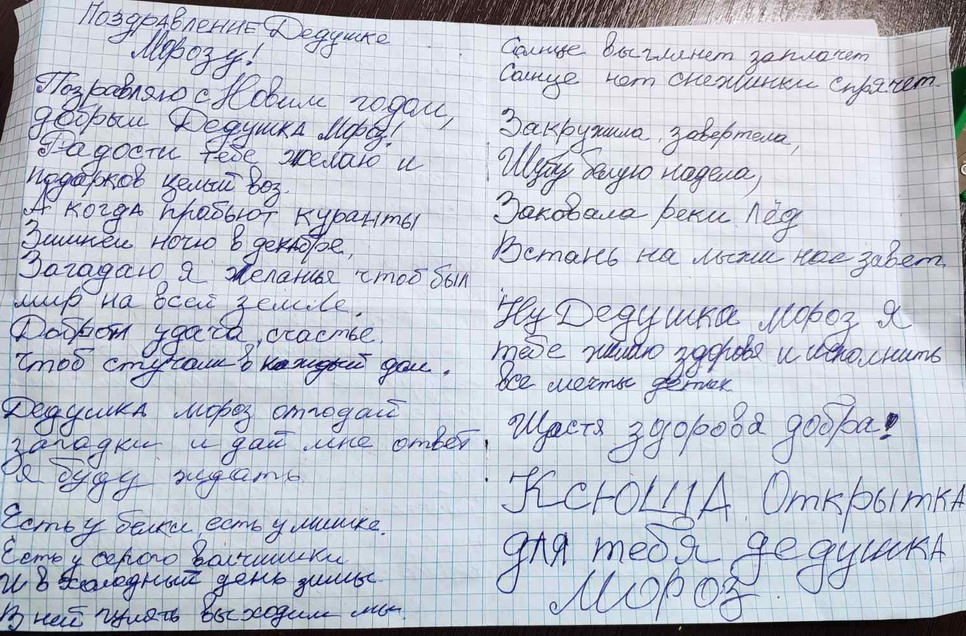 Поздравление Дедушке
Морозу!
Позравляю с Новим годом,
добрый Дедушка Мороз!
Радости тебе желаю и
подарков целый воз.
А когда прабьют куранты
Зимней ночю в декабре,
Загадаю я желанье чтоб был
мир на всей земле.
Доброта удача, счастье.
чтоб стучали в каждый дом.
Дедушка мороз отгодай
загадки и дай мне ответ
я буду ждать
Есть у белки есть у мишке.
Есть у серого волчишики
И в холодный день зимы
В ней гулять выходим мы.
Солнце выгленет заплачет
Солнце нет снежинки спрячет.
Закружила, завертела,
Шубу белую надела,
Заковала реки лёд
Встань на лыжи нас завет.
Ну Дедушка мороз я
тебе жилаю здоровя и исполнить
все мечты деток
Щастя здорова добра!
Ксюша Открытка
для тебя дедушка
Мороз